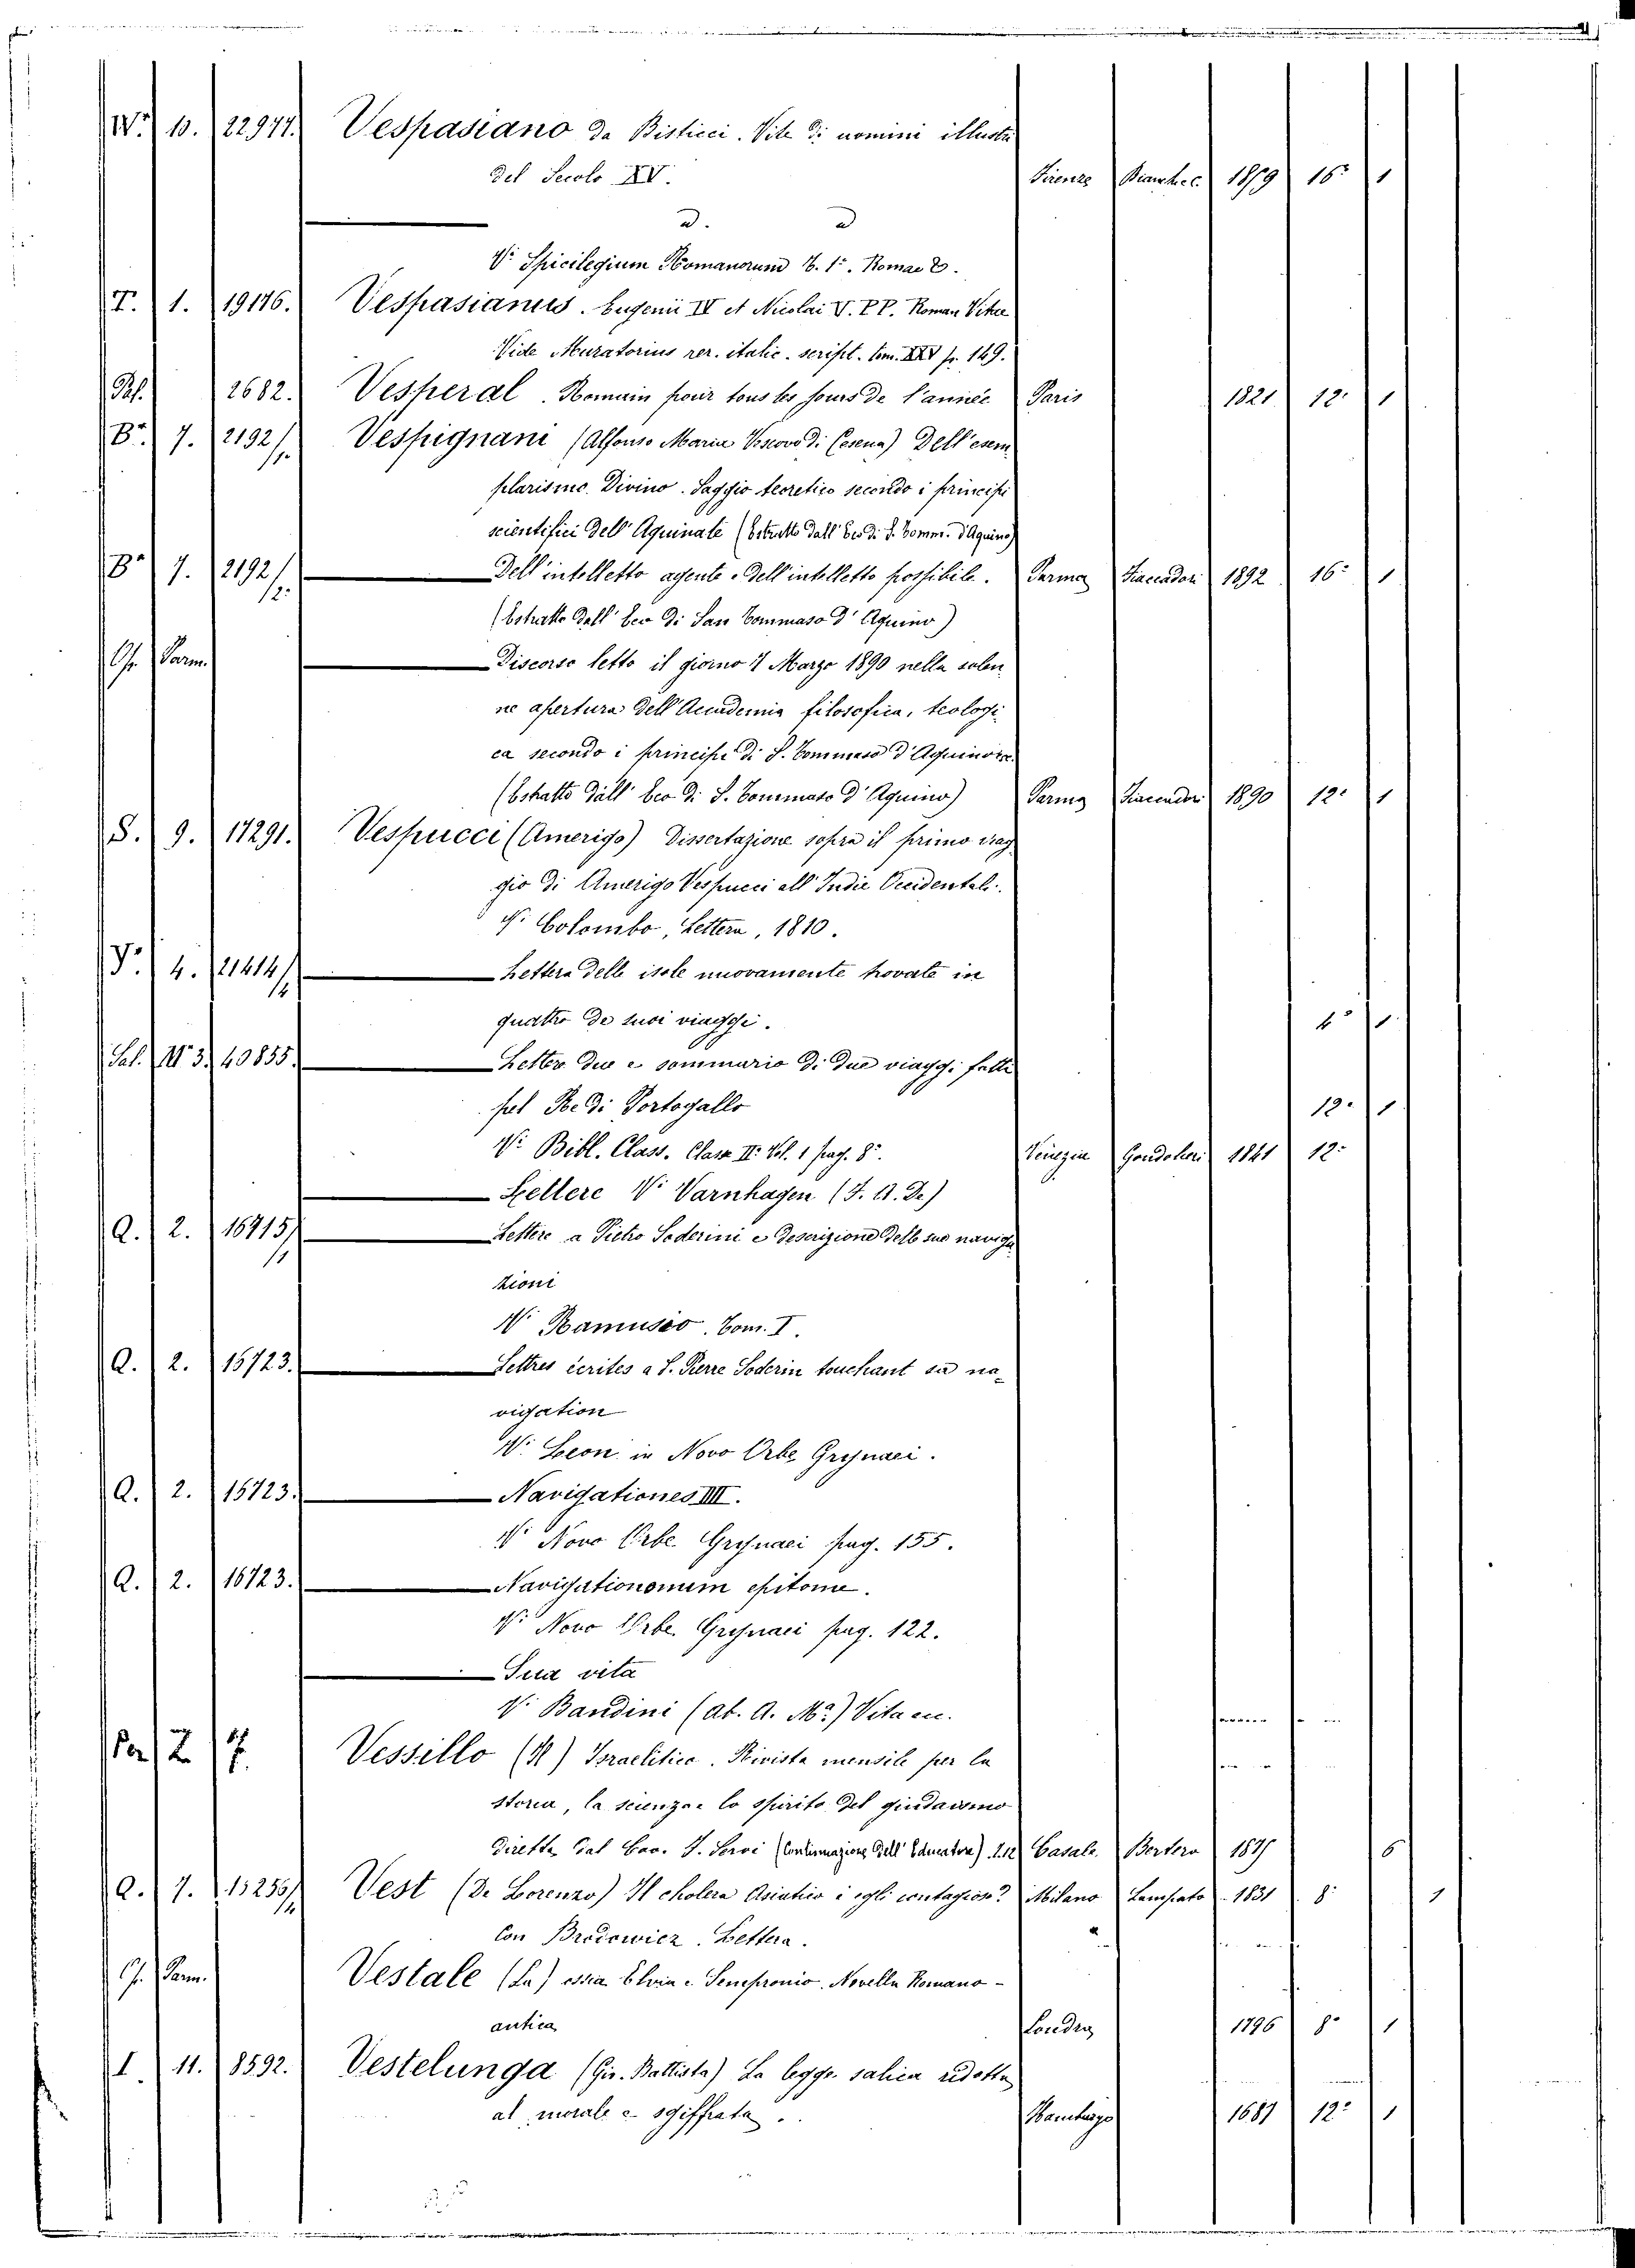 W.º 10. 22977. Vespasiano da Bisticci. Vite di uomini illustri
del Secolo XV. Firenze 1859 16º 1
V.i Spicilegium Romanorum T. 1º. Romae
T. 1. 19176. Vespasianus. Eugenii IV et Nicolai V. PP. Roman Vitae
Vide Muratorius rer. italic. script. tom. XXV p. 149.
Pal. 2682. Vesperal. Romain pour tous les jours de l'année Paris 1821 12º 1
Bº 7. 2192/1. Vespignani (Alfonso Maria Vescovo di Cesena) Dell'esem
plarismo Divino. Saggio teoretico secondo i principi
scientifici dell'Aquinate (Estratto dall'Eco di S. Tomm. d'Aquino)
Bº 7. 2192/2. Dell'intelletto agente e dell'intelletto possibile. Parma Fiaccadori 1892 16º 1
(Estratto dall'Eco di San Tommaso d'Aquino)
G. Parm. Discorso letto il giorno 7 Marzo 1890 nella solen
ne apertura dell'Accademia filosofica, teologi
ca secondo i principi di S. Tommaso d'Aquino
(Estratto dall'Eco di S. Tommaso d'Aquino) Parma Fiaccadori 1890 12º 1
S. 9. 17291. Vespucci (Amerigo) Dissertazione sopra il primo viag
gio di Amerigo Vespucci all'Indie Occidentali.
V.i Colombo, Lettera, 1810.
4. 21414/ Lettera delle isole nuovamente trovate in
quattro de suoi viaggi. 4º 1
Sal. Nº 3. 40855. Lettere due e sommario di due viaggi fatti
pel Re di Portogallo 12º 1
V.i Bibl. Class. Classe II. Vol. 1 pag. 8º. Venezia Gondolieri 1841 12º
Lettere V.i Varnhagen (F. A. De)
Q. 2. 16715/1 Lettere a Pietro Soderini e descrizione delle sue naviga
zioni
V.i Ramusio. Tom. I.
Q. 2. 16723. Lettres écrites a S. Pierre Soderin touchant sa na
vigation
V.i Leon in Novo Orbe Grynaei.
Q. 2. 16723. Navigationes IIII.
V.i Novo Orbe Grynaei pag. 155.
Q. 2. 16723. Navigationonum epitome.
V.i Novo Orbe Grynaei pag. 122.
Sua vita
V.i Bandini (Ab. A. M.ª) Vita ec.
Per 2 7. Vessillo (Il) Israelitico. Rivista mensile per la
storia, la scienza e lo spirito del giudaismo
diretta dal Cav. F. Servi (Continuazione dell'Educatore) Casale. Bertero 187 6
Q. 7. 15256/ Vest (De Lorenzo) Il cholera Asiatico è egli contagioso? Milano Lampato 1831 8º 1
Con Brodowicz. Lettera.
G. Parm. Vestale (La) ossia Elvia e Sempronio. Novella Romano-
antica Londra 1796 8º 1
I. 11. 8592. Vestelunga (Gio. Battista) La legge salica ridotta
al morale e sgiffrata. Hamburgo 1687 12º 1